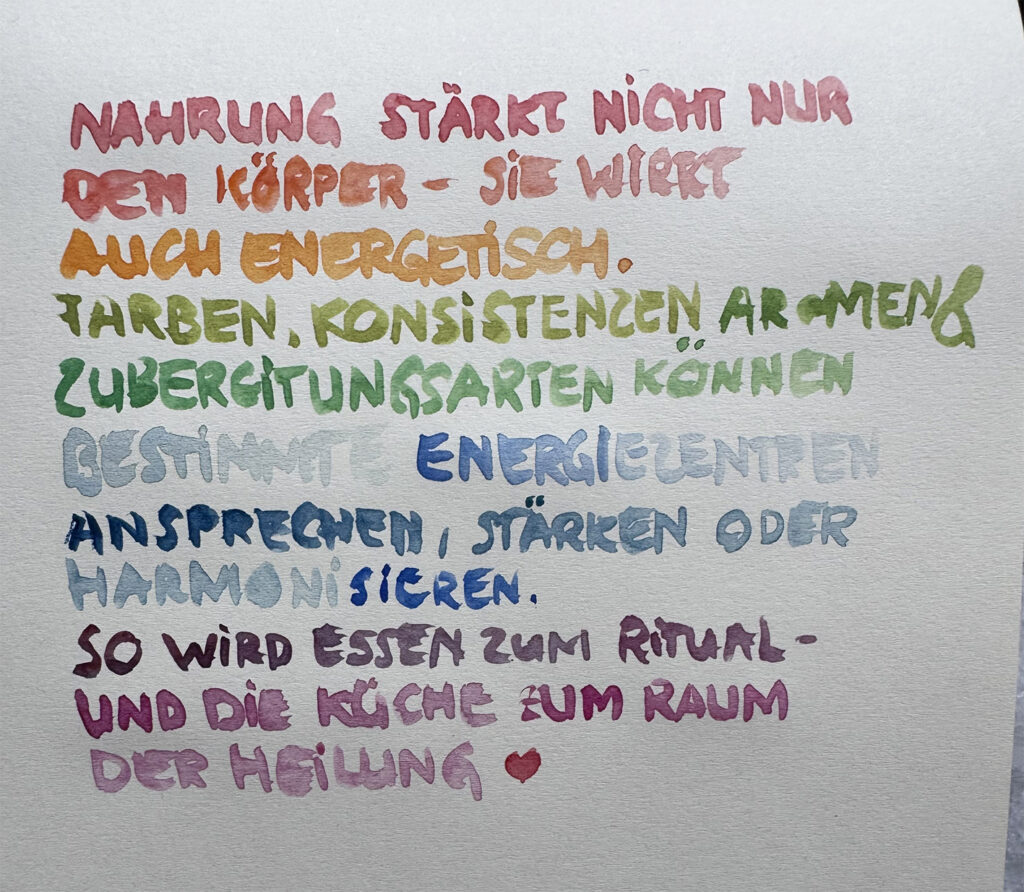 NAHRUNG STÄRKT NICHT NUR
DEN KÖRPER - SIE WIRKT
AUCH ENERGETISCH.
FARBEN, KONSISTENZEN AROMEN &
ZUBEREITUNGSARTEN KÖNNEN
BESTIMMTE ENERGIEZENTREN
ANSPRECHEN, STÄRKEN ODER
HARMONISIEREN.
SO WIRD ESSEN ZUM RITUAL -
UND DIE KÜCHE ZUM RAUM
DER HEILUNG ♥